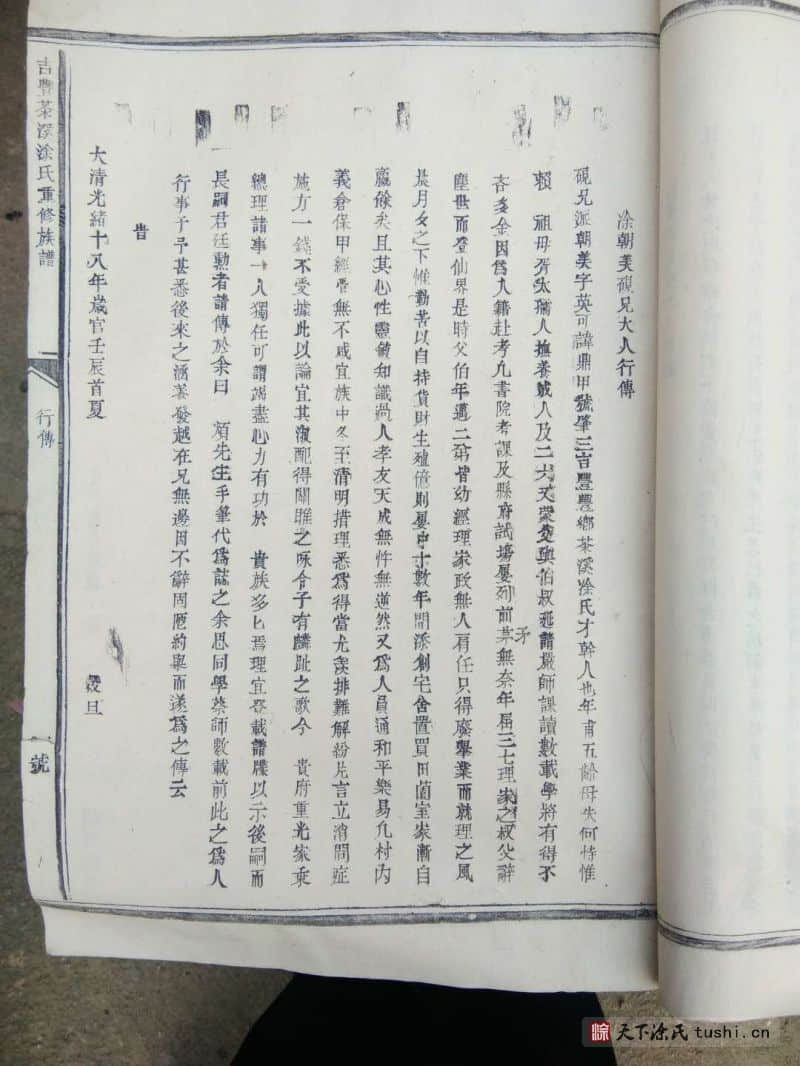 涂朝美硯兄大人行傳
硯兄派朝美字英可諱鼎甲號肇三吉豐豐鄉茶溪涂氏才幹人也年甫五齡母失何恃惟
賴　祖母胥太孺人撫養誠人及二大父榮變與伯叔延請嚴師課讀數載學將有得不
吝多金因爲入籍赴考凡書院考課及縣府試塲屢列前茅無奈年屆三七理家之叔父辭
塵世而登仙界是時父伯年邁二弟皆幼經理家政無人肩任只得廢舉業而就理之風
晨月夕之下惟勤苦以自持貨財生殖億則屢中十數年間添創宅舍置買田園室家漸自
贏餘矣且其心性靈敏知識過人孝友天成無忤無逆然又爲人員通和平樂易凡村內
義倉保甲經管無不咸宜族中冬至清明措理悉爲得當尤羨排難解紛片言立消問症
施方一錢不愛據此以論宜其淑配得關雎之咏令子有麟趾之歌今　貴府重光家乘
總理諸事一人獨任可謂竭盡心力有功於　貴族多匕焉理宜登載譜牒以示後嗣而
長嗣君廷勳者請傳於余曰　煩先生手筆代爲誌之余思同學業師數載前此之爲人
行事予予甚悉後來之涵蓄發越在兄無邊因不辭固陋約畧而遂爲之傳云
旹
大清光緒十八年歲官壬辰首夏　榖旦
吉豐茶溪涂氏重修族譜
行傳
號
天下涂氏 tushi.cn